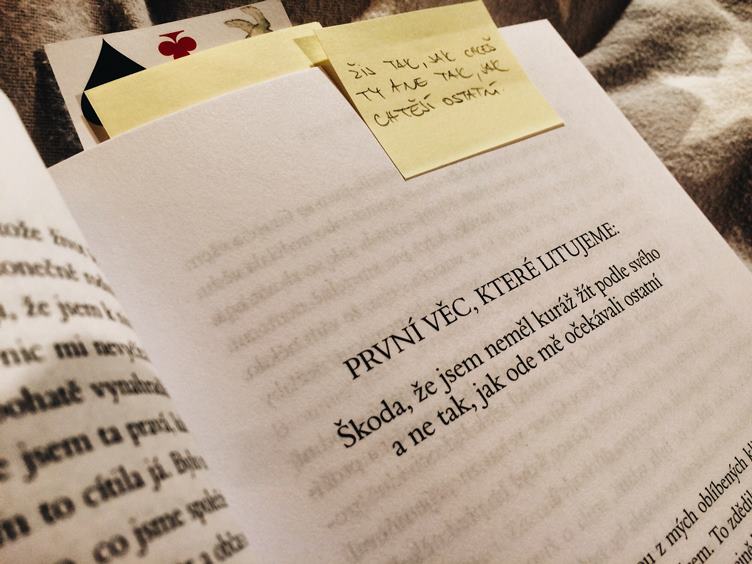 ŽIJ TAK, JAK CHCEŠ
TY A NE TAK, JAK
CHTĚJÍ OSTATNÍ.
PRVNÍ VĚC, KTERÉ LITUJEME:
Škoda, že jsem neměl kuráž žít podle svého
a ne tak, jak ode mě očekávali ostatní
z mých oblíbených
To zdědil
tože
konečně
, že jsem k
nic mi
bohatě
jsem ta pravá,
to cítila já.
co jsme